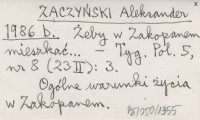 ZĄCZYŃSKI Aleksander
1986 b. Żeby w Zakopanem
mieszkać... — Tyg. Pol. 5,
nr 8 (23 II): 3.
Ogólne warunki życia
w Zakopanem.